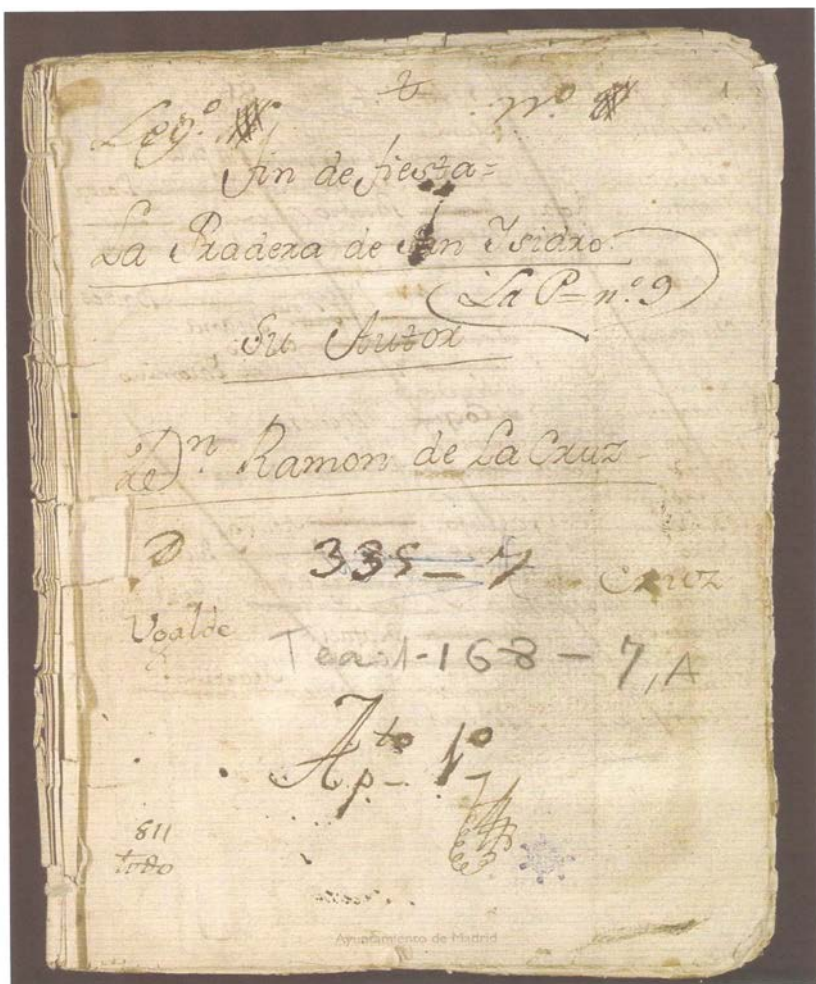 Leg.º nº 1
Fin de fiesta=
La Pradera de San Isidro.
La P= n.º 9
Su Autor
de Dn Ramon de La Cruz
335-7 Cruz
Ugalde
Teat-168-7, A
Apto 1º
811
todo
Ayuntamiento de Madrid